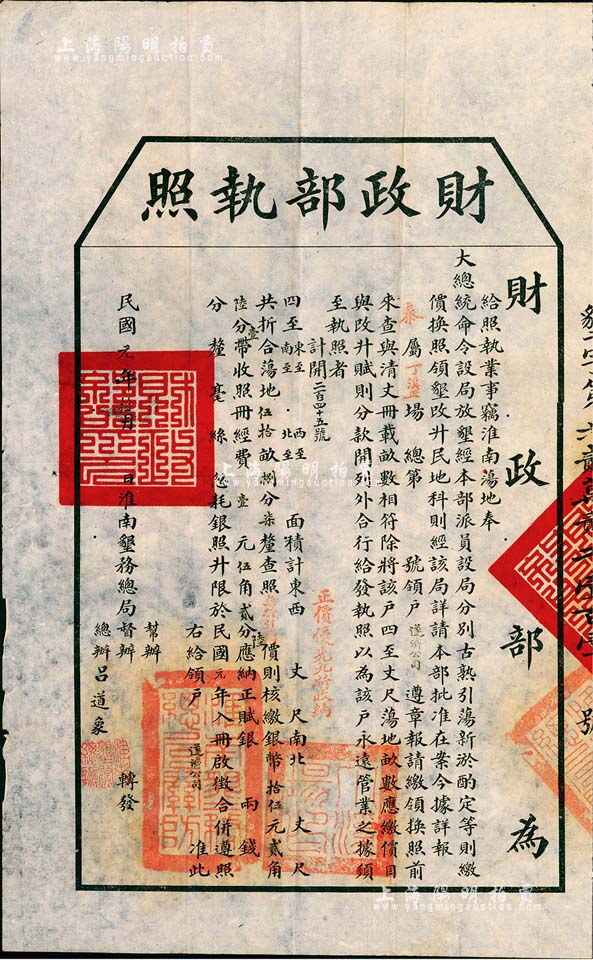 上海陽明拍賣
www.yangmingauction.com
財政部執照
財政部為
給照執業事竊淮南蕩地奉
大總統命令設局放墾經本部派員設局分別古熟引蕩新淤酌定等則繳
價換照領墾改升民地科則經該局詳請本部批准在案今據詳報
泰屬丁溪場總第 號領戶遂濟公司遵章報請繳領換照前
來查與清丈冊載畝數相符除將該戶四至丈尺蕩地畝數應繳價目
與改升賦則分款開列外合行給發執照以為該戶永遠管業之據須
至執照者
計開二百四十五號
四至 東至 西至 南至 北至 面積計東西 丈 尺南北 丈 尺
共折合蕩地伍拾畝捌分柒釐查照 價則核繳銀幣拾伍元貳角
陸分帶收照冊經費壹元伍角貳分應納正賦銀 兩 錢
分 釐 毫 絲 忽耗銀照升限於民國元年入冊啟徵合併遵照
右給領戶遂濟公司准此
民國元年 月 日淮南墾務總局督辦
幫辦
總辦呂道象
轉發
正價優先 繳納
號
上海陽明拍賣
www.yangmingauction.com